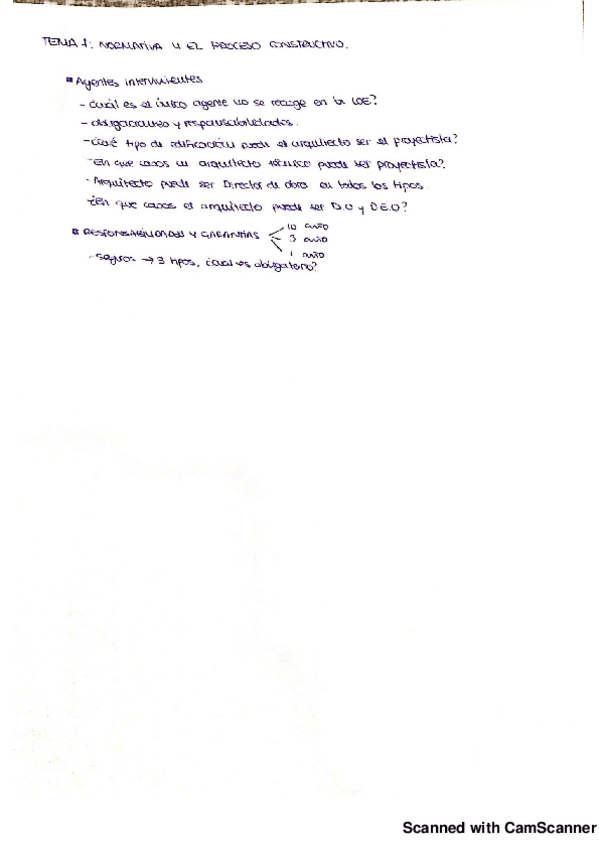 TEMA 1: NORMATIVA Y EL PROCESO CONSTRUCTIVO.
Agentes intervinientes
- Cuál es el único agente no se recoge en la LOE?
- obligaciones y responsabilidades.
- ¿Qué tipo de edificación puede el arquitecto ser el proyectista?
- En que casos un arquitecto técnico puede ser proyectista?
- Arquitecto puede ser Director de obra en todos los tipos
¿En que casos el arquitecto puede ser D.O y D.E.O?
RESPONSABILIDADES Y GARANTÍAS
10 año
3 año
1 año
- seguros → 3 tipos, ¿cual es obligatorio?
Scanned with CamScanner